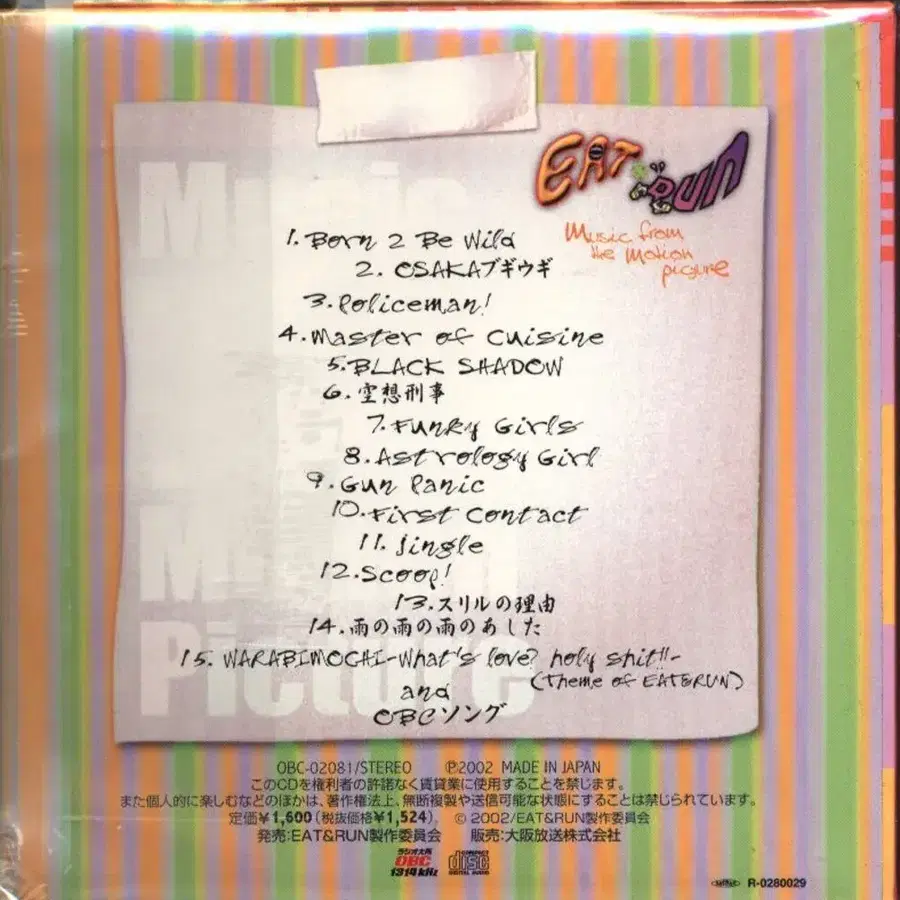 EAT & RUN
Music from
the motion
picture
Music
Motion
Picture
1. Born 2 Be Wild
2. OSAKAブギウギ
3. Policeman!
4. Master of Cuisine
5. BLACK SHADOW
6. 空想刑事
7. Funky Girls
8. Astrology Girl
9. Gun Panic
10. First Contact
11. Jingle
12. Scoop!
13. スリルの理由
14. 雨の雨の雨のあした
15. WARABIMOCHI-What's love? holy shit!!-
(Theme of EAT&RUN)
and
OBCソング
OBC-02081/STEREO ℗2002 MADE IN JAPAN
このCDを権利者の許諾なく賃貸業に使用することを禁じます。
また個人的に楽しむなどのほかは、著作権法上、無断複製や送信可能な状態にすることは禁じられています。
定価¥1,600(税抜価格¥1,524)。 © 2002/EAT&RUN製作委員会
発売:EAT&RUN製作委員会 販売:大阪放送株式会社
ラジオ大阪
OBC
1314 kHz
COMPACT
disc
DIGITAL AUDIO
R-0280029